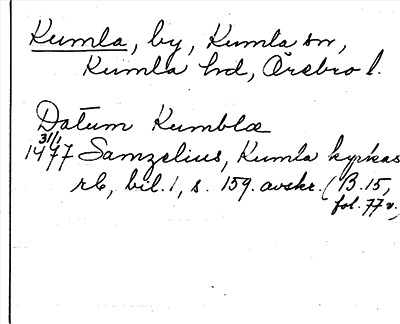 Kumla, by, Kumla sn,
Kumla hd, Örebro l.
Datum Kumblæ
31/1
1477 Samzelius, Kumla kyrkas
rb, bil. 1, s. 159. avskr. (B. 15,
fol. 77 v.)